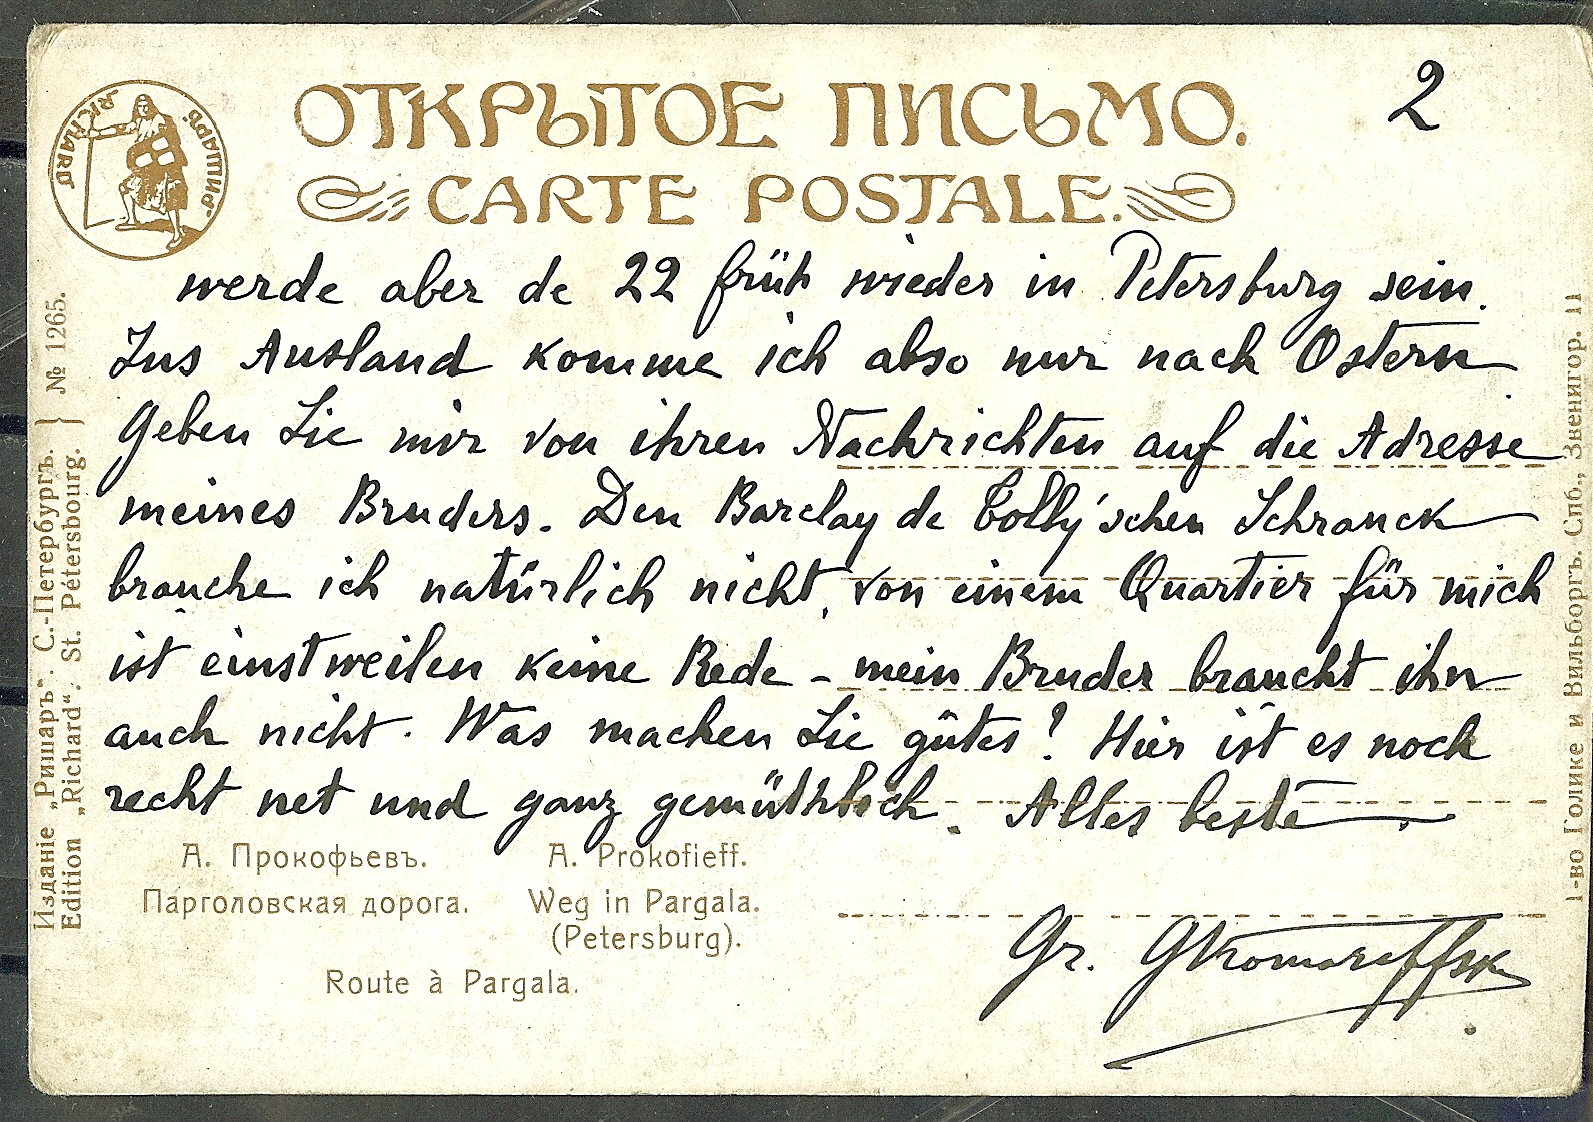 ОТКРЫТОЕ ПИСЬМО.
2
CARTE POSTALE.
RICHARD
РИШАРЪ.
werde aber de 22 früh wieder in Petersburg sein.
Ins Ausland komme ich also nur nach Ostern
Geben Sie mir von ihren Nachrichten auf die Adresse
meines Bruders. Den Barclay de Tolly'schen Schranck
brauche ich natürlich nicht, von einem Quartier für mich
ist einstweilen keine Rede - mein Bruder braucht ihn
auch nicht. Was machen Sie gutes? Hier ist es noch
recht net und ganz gemüthlich. Alles beste
Gr.
А. Прокофьевъ.
Парголовская дорога.
A. Prokofieff.
Weg in Pargala.
(Petersburg).
Route à Pargala.
Изданіе „Ришаръ“. С.-Петербургъ.
Edition „Richard“. St. Pétersbourg.
№ 1265.
Т-во Голике и Вильборгъ. Спб., Звенигор. 11